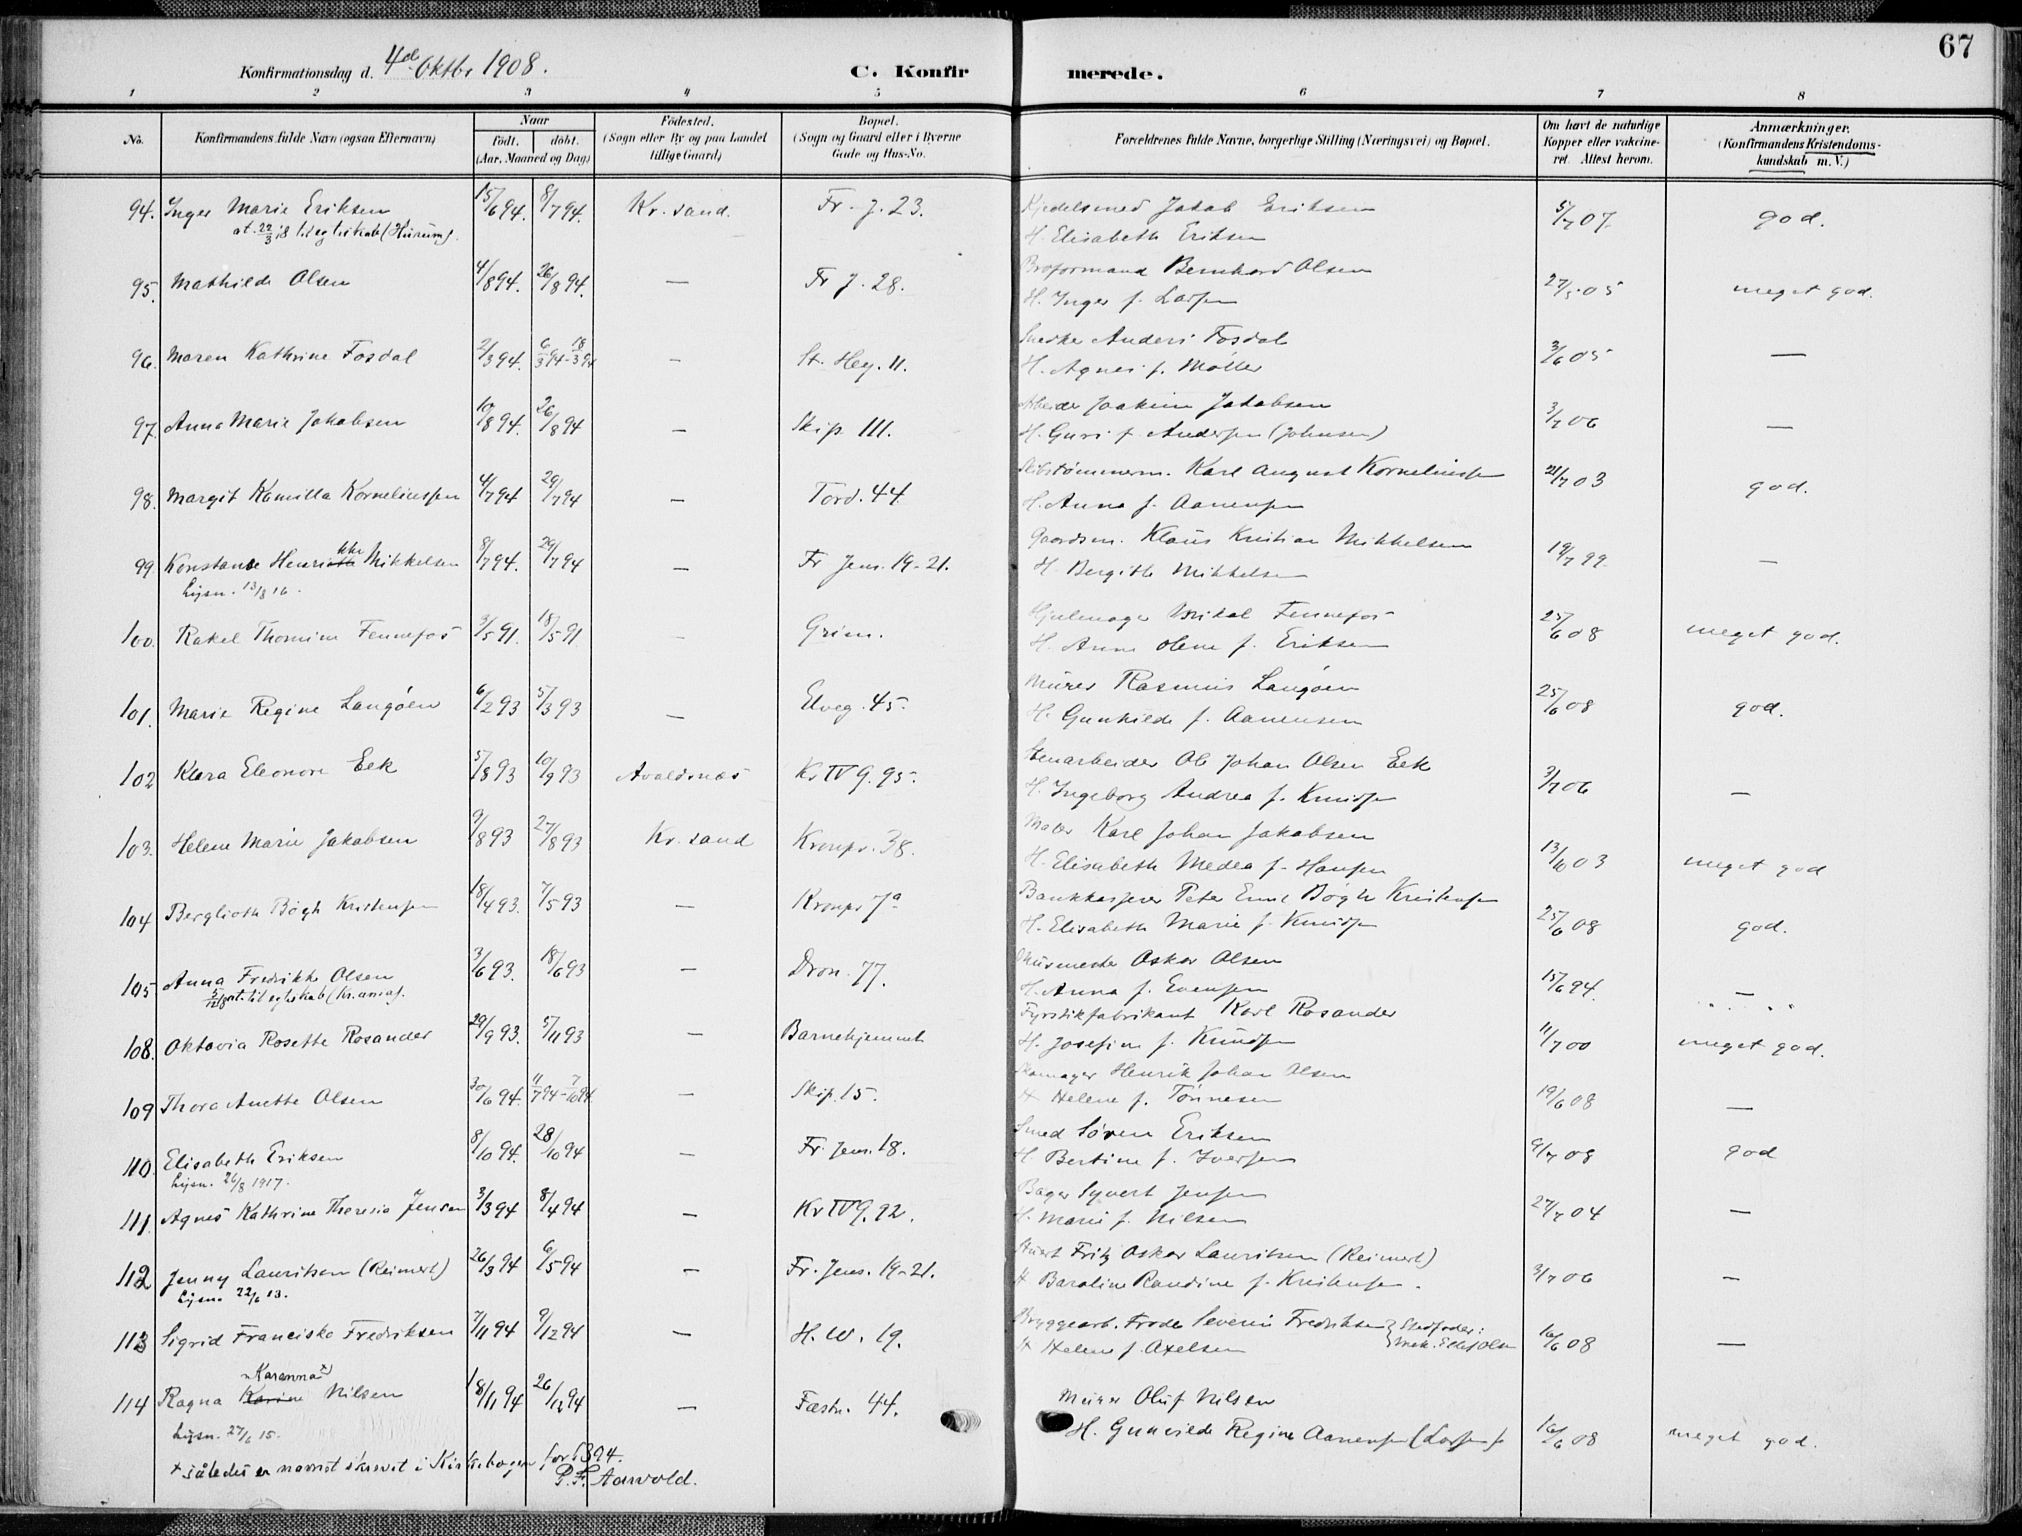 67
Konfirmationsdag d. 4de Oktbr 1908. C. Konfirmerede.
1 2 3 4 5 6 7 8
No. Konfirmandens fulde Navn (ogsaa Efternavn) Naar født. døbt. (Aar, Maaned og Dag) Fødested. (Sogn eller By og paa Landet tillige Gaard) Bopæl. (Sogn og Gaard eller i Byerne Gade og Hus-No. Forældrenes fulde Navne, borgerlige Stilling (Næringsvei) og Bopæl. Om havt de naturlige Kopper eller vakcineret. Attest herom. Anmærkninger. (Konfirmandens Kristendomskundskab m. V.)
94. Inger Marie Eriksen 15/6 94. 8/7 94. Kr. sand. Fr. J. 23. Kjedelsmed Jakob Eriksen 5/7 07. god.
at. 22/3 18 til egteskab (Hurum). H. Elisabeth Eriksen
95. Mathilde Olsen 4/8 94. 26/8 94. — Fr J. 28. Broformand Bernhard Olsen 27/5 05 meget god.
H. Inger f. Larsen
96. Maren Kathrine Fosdal 2/3 94. 6/3 94 - 18/3 94 — St. Heg. 11. Snedker Anders Fosdal 3/6 05 —
H. Agnes f. Møller
97. Anna Marie Jakobsen 10/8 94. 26/8 94 — Skip. 111. Arbeider Joakim Jakobsen 3/7 06 —
H. Guri f. Andersen (Johnsen)
98. Margit Kamilla Korneliussen 4/7 94 29/7 94 — Tord. 44. Skibstømmerm. Karl August Korneliussen 21/7 03 god.
H. Anna f. Aanensen
99 Konstanse Henrikke Mikkelsen 8/7 94. 29/7 94 — Fr Jens. 19-21. Gaardsm. Klaus Kristian Mikkelsen 19/7 99. —
Lysn. 13/8 16. H. Bergithe Mikkelsen
100. Rakel Thomine Fennefos 3/5 91. 18/5 91 — Grim. Hjulmager Mikal Fennefos 25/6 08 meget god.
H. Anne Olene f. Eriksen
101. Marie Regine Langøen 6/2 93 5/3 93 — Elveg. 45. Murer Rasmus Langøen 25/6 08 god.
H. Gunhilde f. Aanensen
102 Klara Eleonore Eek 5/8 93 10/9 93 Avaldsnæs Kv IV 9. 95. Stenarbeider Ole Johan Olsen Eek 3/7 06 —
H. Ingeborg Andrea f. Knudsen
103. Helene Marie Jakobsen 9/8 93 27/8 93 Kr. sand Kronpr. 38. Maler Karl Johan Jakobsen 13/10 03 meget god
H. Elisabeth Medea f. Hansen
104 Berglioth Bøgh Kristensen 18/4 93. 7/5 93 — Kronpr 7a Bankkasserer Peter Emil Bøgh Kristensen 25/6 08 god.
H. Elisabeth Marie f. Knudsen
105. Anna Fredrikke Olsen 3/6 93. 18/6 93 — Dron. 77. Oskar Olsen 15/6 94. —
at. til egteskab (Kr.ania). H. Anna f. Evensen
108. Oktavia Rosette Rosander 29/9 93. 5/11 93 — Barnehjemmet Fyrstikfabrikant Karl Rosander 11/7 00 meget god.
H. Josefine f. Knudsen
109 Thora Anette Olsen 30/6 94. 11/7 94 - 7/10 94 — Skip. 15. Skomager Henrik Johan Olsen 19/6 08 —
H Helene f. Tønnesen
110 Elisabeth Eriksen 8/10 94. 28/10 94 — Fr. Jens. 18. Smed Søren Eriksen 9/7 08 god
Lysn. 26/8 1917. H Bertine f. Iversen
111. Agnes Kathrine Theresia Jensen 3/3 94 8/4 94 — Kv IV 9. 92. Bager Syvert Jensen 27/7 04 —
H. Marie f. Nilsen
112 Jenny Lauritsen (Reinert) 26/3 94 6/5 94 — Fr. Jens. 19-21. Fritz Oskar Lauritsen (Reinert) 3/7 06 —
Lysn. 22/6 13. H Baroline Randine f. Kristensen.
113 Sigrid Franciska Fredriksen 7/11 94 9/12 94 — H. W. 19. Bryggearb. Frode Severin Fredriksen Stedfader: 16/6 08 —
H Helene f. Axelsen Olsen
"Karenna" x
114 Ragna Karine Nilsen 18/11 94 26/12 94 — Fæstn. 44. Murer Oluf Nilsen
Lysn. 27/6 15. H. Gunvilde Regine Aanensen (Larsen) 16/6 08 meget god.
x således er navnet skrevet i Kirkebogen for 1894.
P. F. Aarvold.